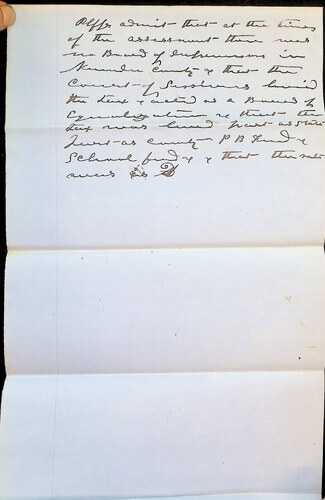 Plffs admit that at the time
of the assessment there was
no Board of Supervisors in
County & that the
Court of Sessions levied
the tax & acted as a Board of
Equalization & that the
tax was levied part as State
part as County P B Fund &
School fund & that the rate
was